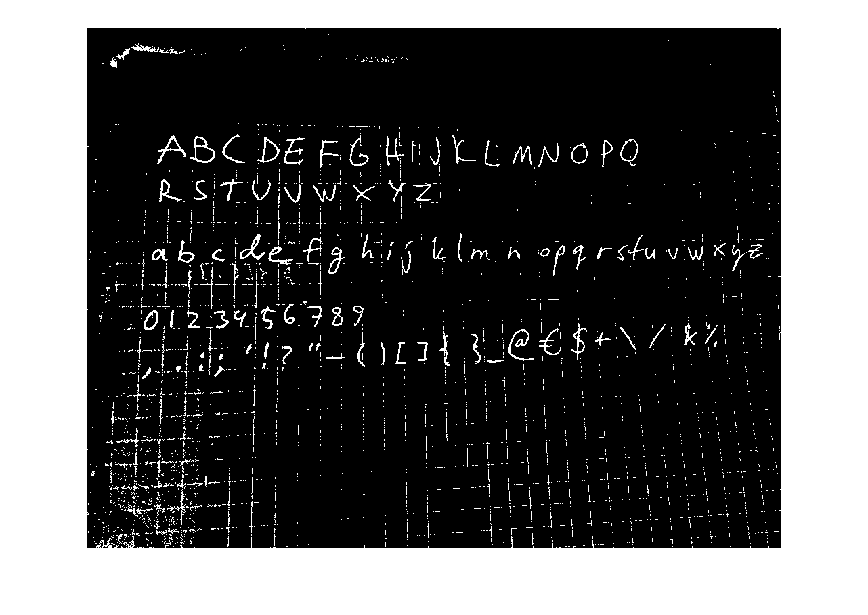 ABCDEFGHIJKLMNOPQ
RSTUVWXYZ
abcdefghijklmnopqrstuvwxyz
0123456789
,.:;'!?"-()[]{}_@€$+\/ %